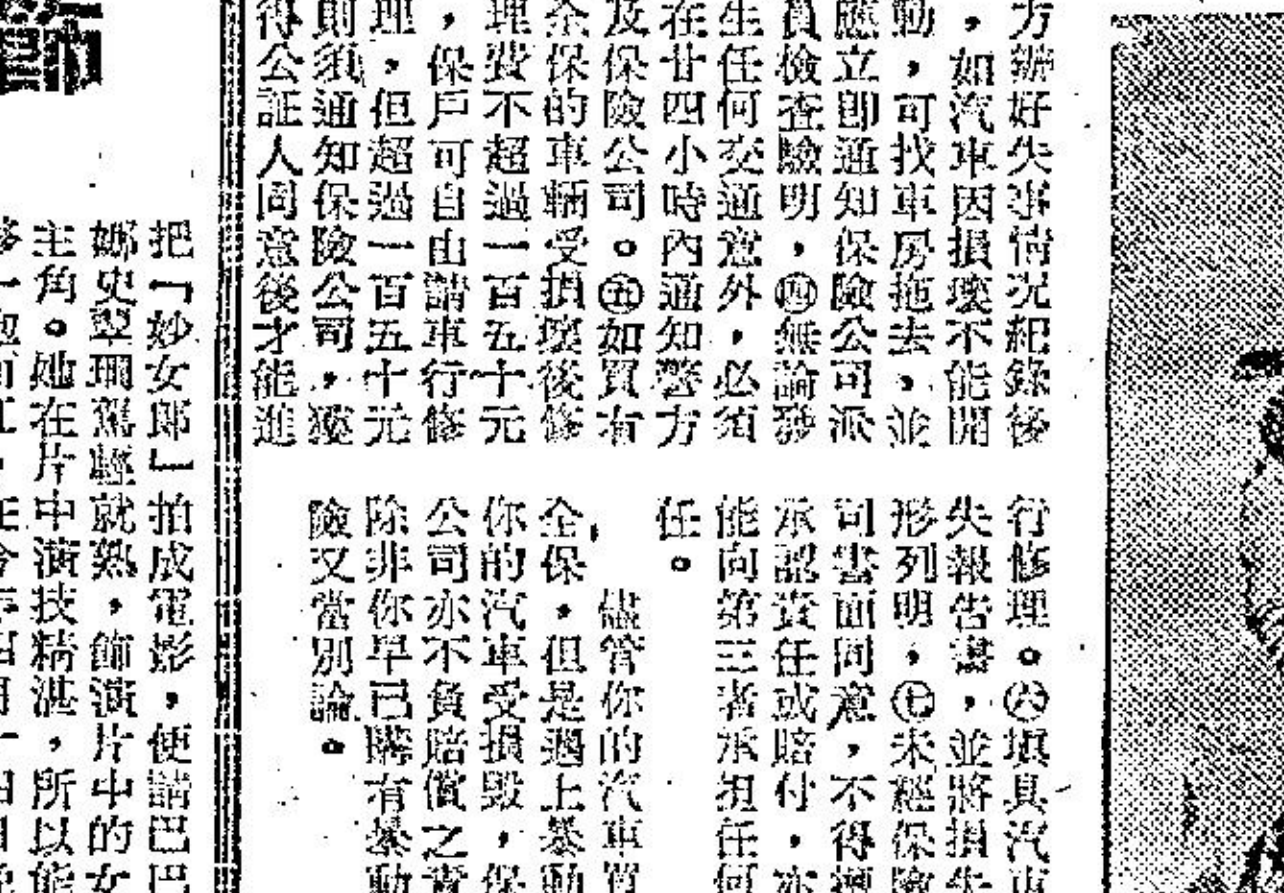 方辦好失事情况紀錄後
，如汽車因損壞不能開
動，可找車房拖去，並
應立即通知保險公司派
員檢查驗明，㊃無論發
生任何交通意外，必須
在廿四小時內通知警方
及保險公司。㊄如買有
全保的車輛受損壞後修
理費不超過一百五十元
，保戶可自由請車行修
理，但超過一百五十元
則須通知保險公司，獲
得公証人同意後才能進
行修理。㊅填具汽車
失報告書，並將損失
形列明，㊆未經保險
司書面同意，不得擅
承認責任或賠付，亦
能向第三者承担任何
任。
儘管你的汽車買
全保，但是遇上暴動
你的汽車受損毀，保
公司亦不負賠償之責
除非你早已購有暴動
險又當別論。
把「妙女郎」拍成電影，便請巴巴
娜史翠珊駕輕就熟，飾演片中的女
主角。她在片中演技精湛，所以能